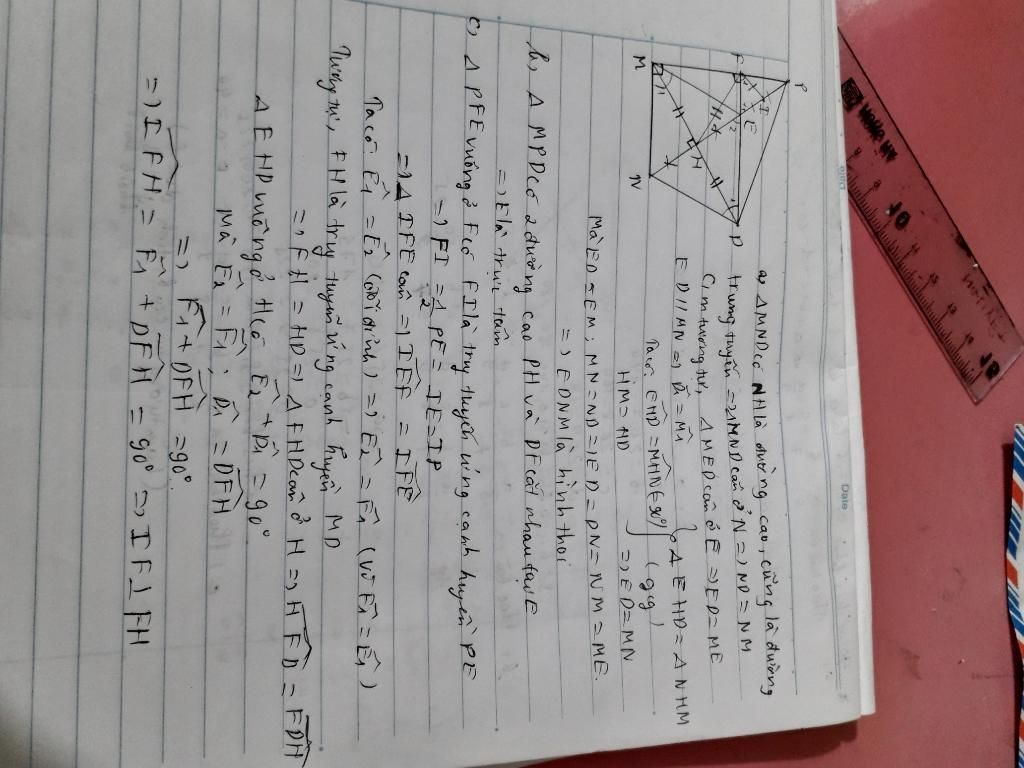 a, Δ MND có NH là đường cao, cũng là đường
trung tuyến => ΔMND cân ở N => ND = NM
C/m tương tự, ΔMED cân ở E => ED = ME
ED // MN => D̂₁ = M̂₁ } Δ EHD = Δ NHM
Ta có EHD = MHN (=90°) (gcg)
HM = HD => ED = MN
Mà ED = EM ; MN = ND => ED = DN = NM = ME
=> EDNM là hình thoi
b, Δ MPD có 2 đường cao PH và DF cắt nhau tại E
=> E là trực tâm
c, Δ PFE vuông ở F có FI là trg tuyến ứng cạnh huyền PE
=> FI = 1/2 PE = IE = IP
=> Δ IFE cân => IEF = IFE
Ta có Ê₁ = Ê₂ (đối đỉnh) => Ê₂ = F̂₁ (vì Ê₁ = F̂₁)
Tương tự, FH là trg tuyến ứng cạnh huyền MD
=> FH = HD => Δ FHD cân ở H => HFD = FDH
Δ EHD vuông ở H có Ê₂ + D̂₁ = 90°
Mà Ê₂ = F̂₁ ; D̂₁ = DFH
=> F̂₁ + DFH = 90°
=> IFH = F̂₁ + DFH = 90° => IF ⊥ FH
P
F
I
E
D
M
H
N
Date
10